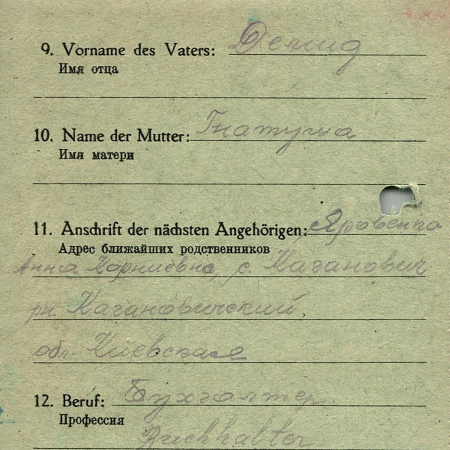 9. Vorname des Vaters: Демид
Имя отца
10. Name der Mutter: Гнатуша
Имя матери
11. Anschrift der nächsten Angehörigen: Яровенко
Адрес ближайших родственников
Анна Корниевна, с. Каганович
рн. Кагановичский,
обл. Киевская
12. Beruf: Бухгалтер.
Профессия
Buchhalter